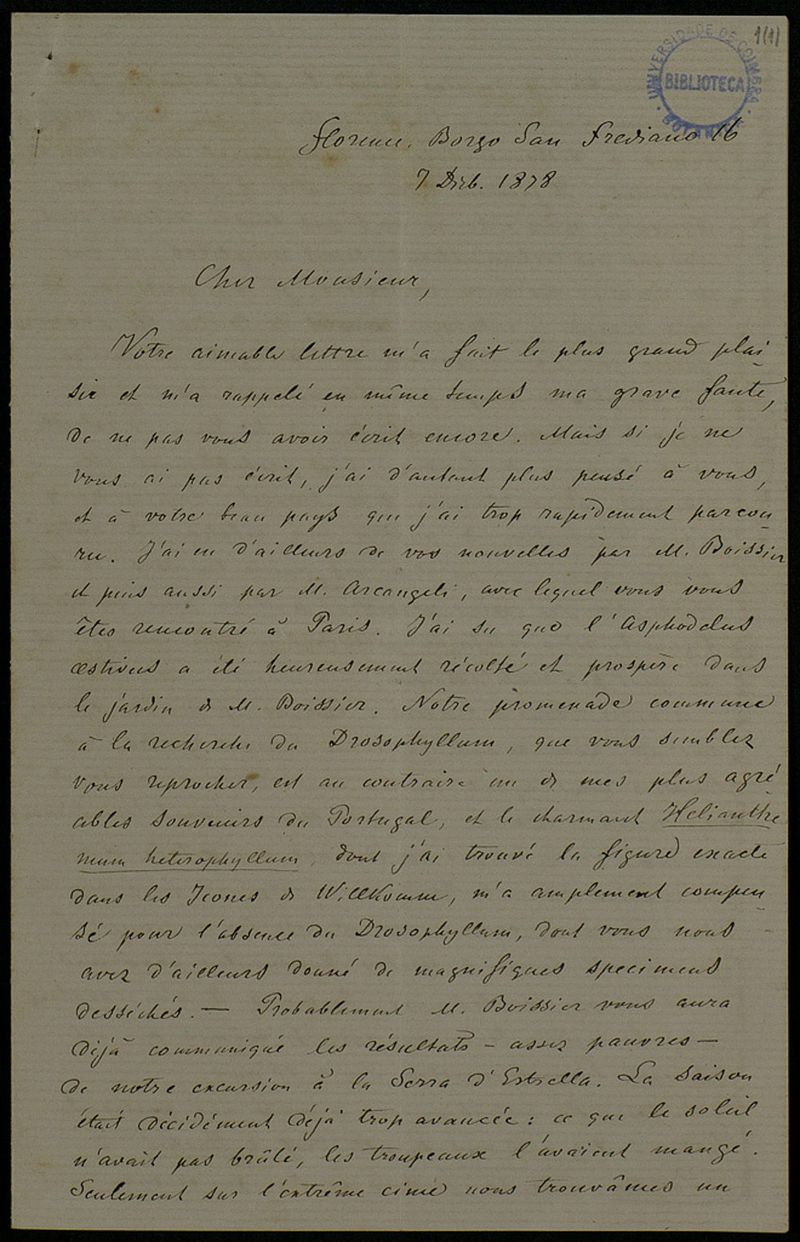 1(1)
UNIVERSIDADE DE COIMBRA
BIBLIOTECA
Florence, Borgo San Frediano 16
7 Dicb. 1878
Cher Monsieur,
Votre aimable lettre m'a fait le plus grand plai-
sir et m'a rappelé en même temps ma grave faute,
de ne pas vous avoir écrit encore. Mais si je ne
vous ai pas écrit, j'ai d'autant plus pensé à vous,
et à votre beau pays que j'ai trop rapidement parcou-
ru. J'ai eu d'ailleurs de vos nouvelles par M. Boissier
et puis aussi par M. Arcangeli, avec lequel vous vous
êtes rencontré à Paris. J'ai su que l'Asphodelus
æstivus a été heureusement récolté et prospère dans
le jardin de M. Boissier. Notre promenade commune
à la recherche du Drosophyllum, que vous semblez
vous reprocher, est au contraire un de mes plus agré
ables souvenirs du Portugal, et le charmant Helianthe
mum heterophyllum, dont j'ai trouvé la figure exacte
dans les Icones de Willkomm, m'a amplement compen-
sé pour l'absence du Drosophyllum, dont vous nous
avez d'ailleurs donné de magnifiques specimens
desséchés. — Probablement M. Boissier vous aura
déjà communiqué les résultats – assez pauvres –
de notre excursion à la Serra d'Estrella. La saison
était décidément déjà trop avancée: ce que le soleil
n'avait pas brûlé, les troupeaux l'avaient mangé.
Seulement sur l'extrême cime nous trouvâmes un